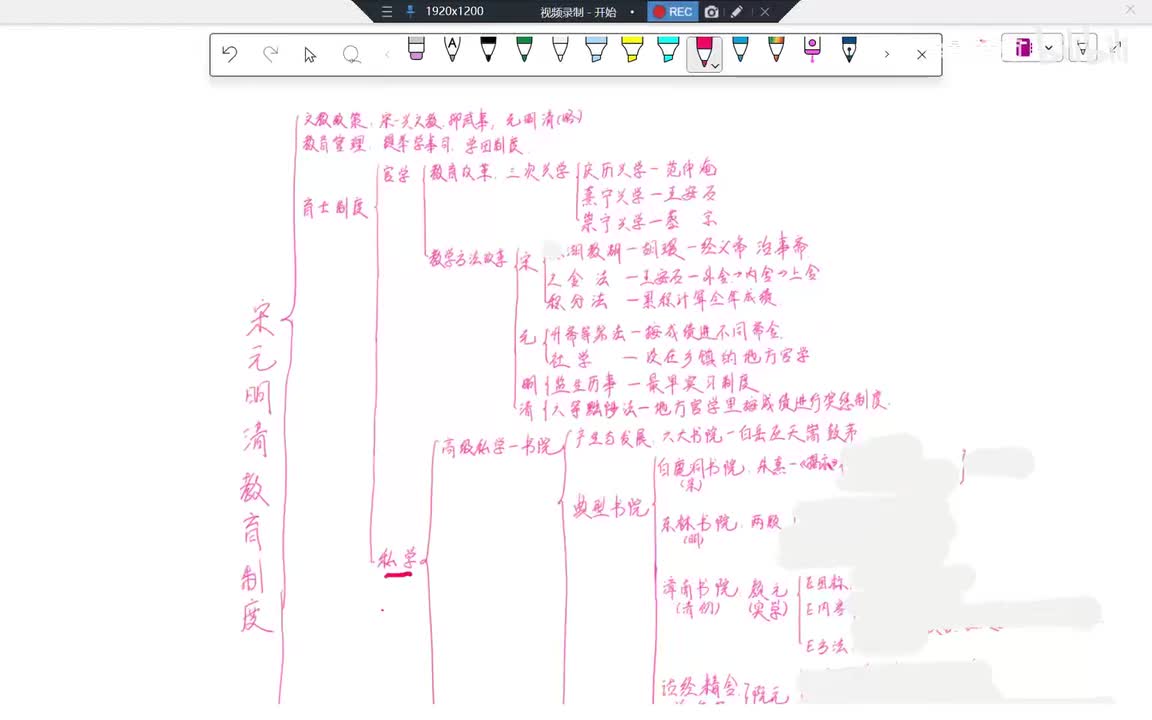 1920x1200 视频录制 - 开始 • REC
文教政策. 宋-兴文教.抑武事, 元明清(略)
教育管理. 提举学事司. 学田制度.
官学
教育改革. 三次兴学
庆历兴学-范仲淹
育士制度
熙宁兴学-王安石
崇宁兴学-蔡 京
教学方法改革
宋
湖教朝-胡瑗-经义斋 治事斋
舍法-王安石-外舍→内舍→上舍
积分法-累积计算全年成绩
元
升斋等第法-按成绩进不同斋舍.
社学-设在乡镇的地方官学
明
监生历事-最早实习制度
清
六等黜陟法-地方官学里按成绩进行奖惩制度.
高级私学-书院
产生与发展. 六大书院-白岳应天嵩鼓茅
白鹿洞书院. 朱熹-《揭示》
(宋)
典型书院
东林书院. 两股
(明)
私学
漳南书院 颜元
(清初) (实学)
E目标.
E内容
E方法
诂经精舍. 阮元
宋元明清教育制度